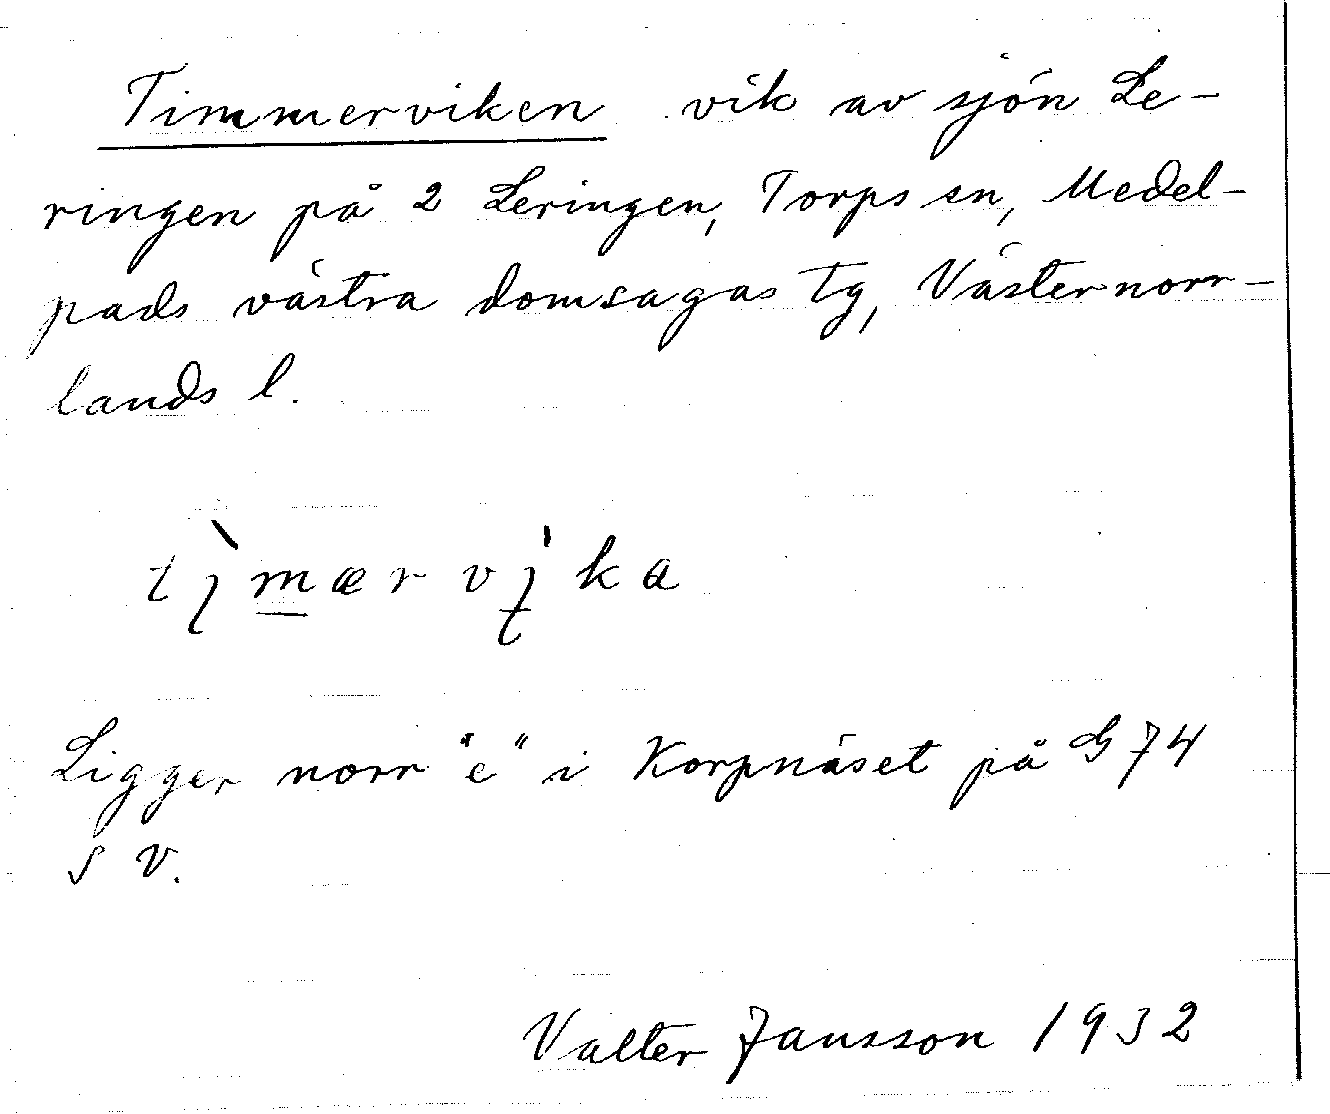 Timmerviken vik av sjön Le-
ringen på 2 Leringen, Torps sn, Medel-
pads västra domsagas tg, Västernorr-
lands l.
tìmærvika
Ligger norr "e" i Korpnäset på G 74
S V.
Valter Jansson 1932